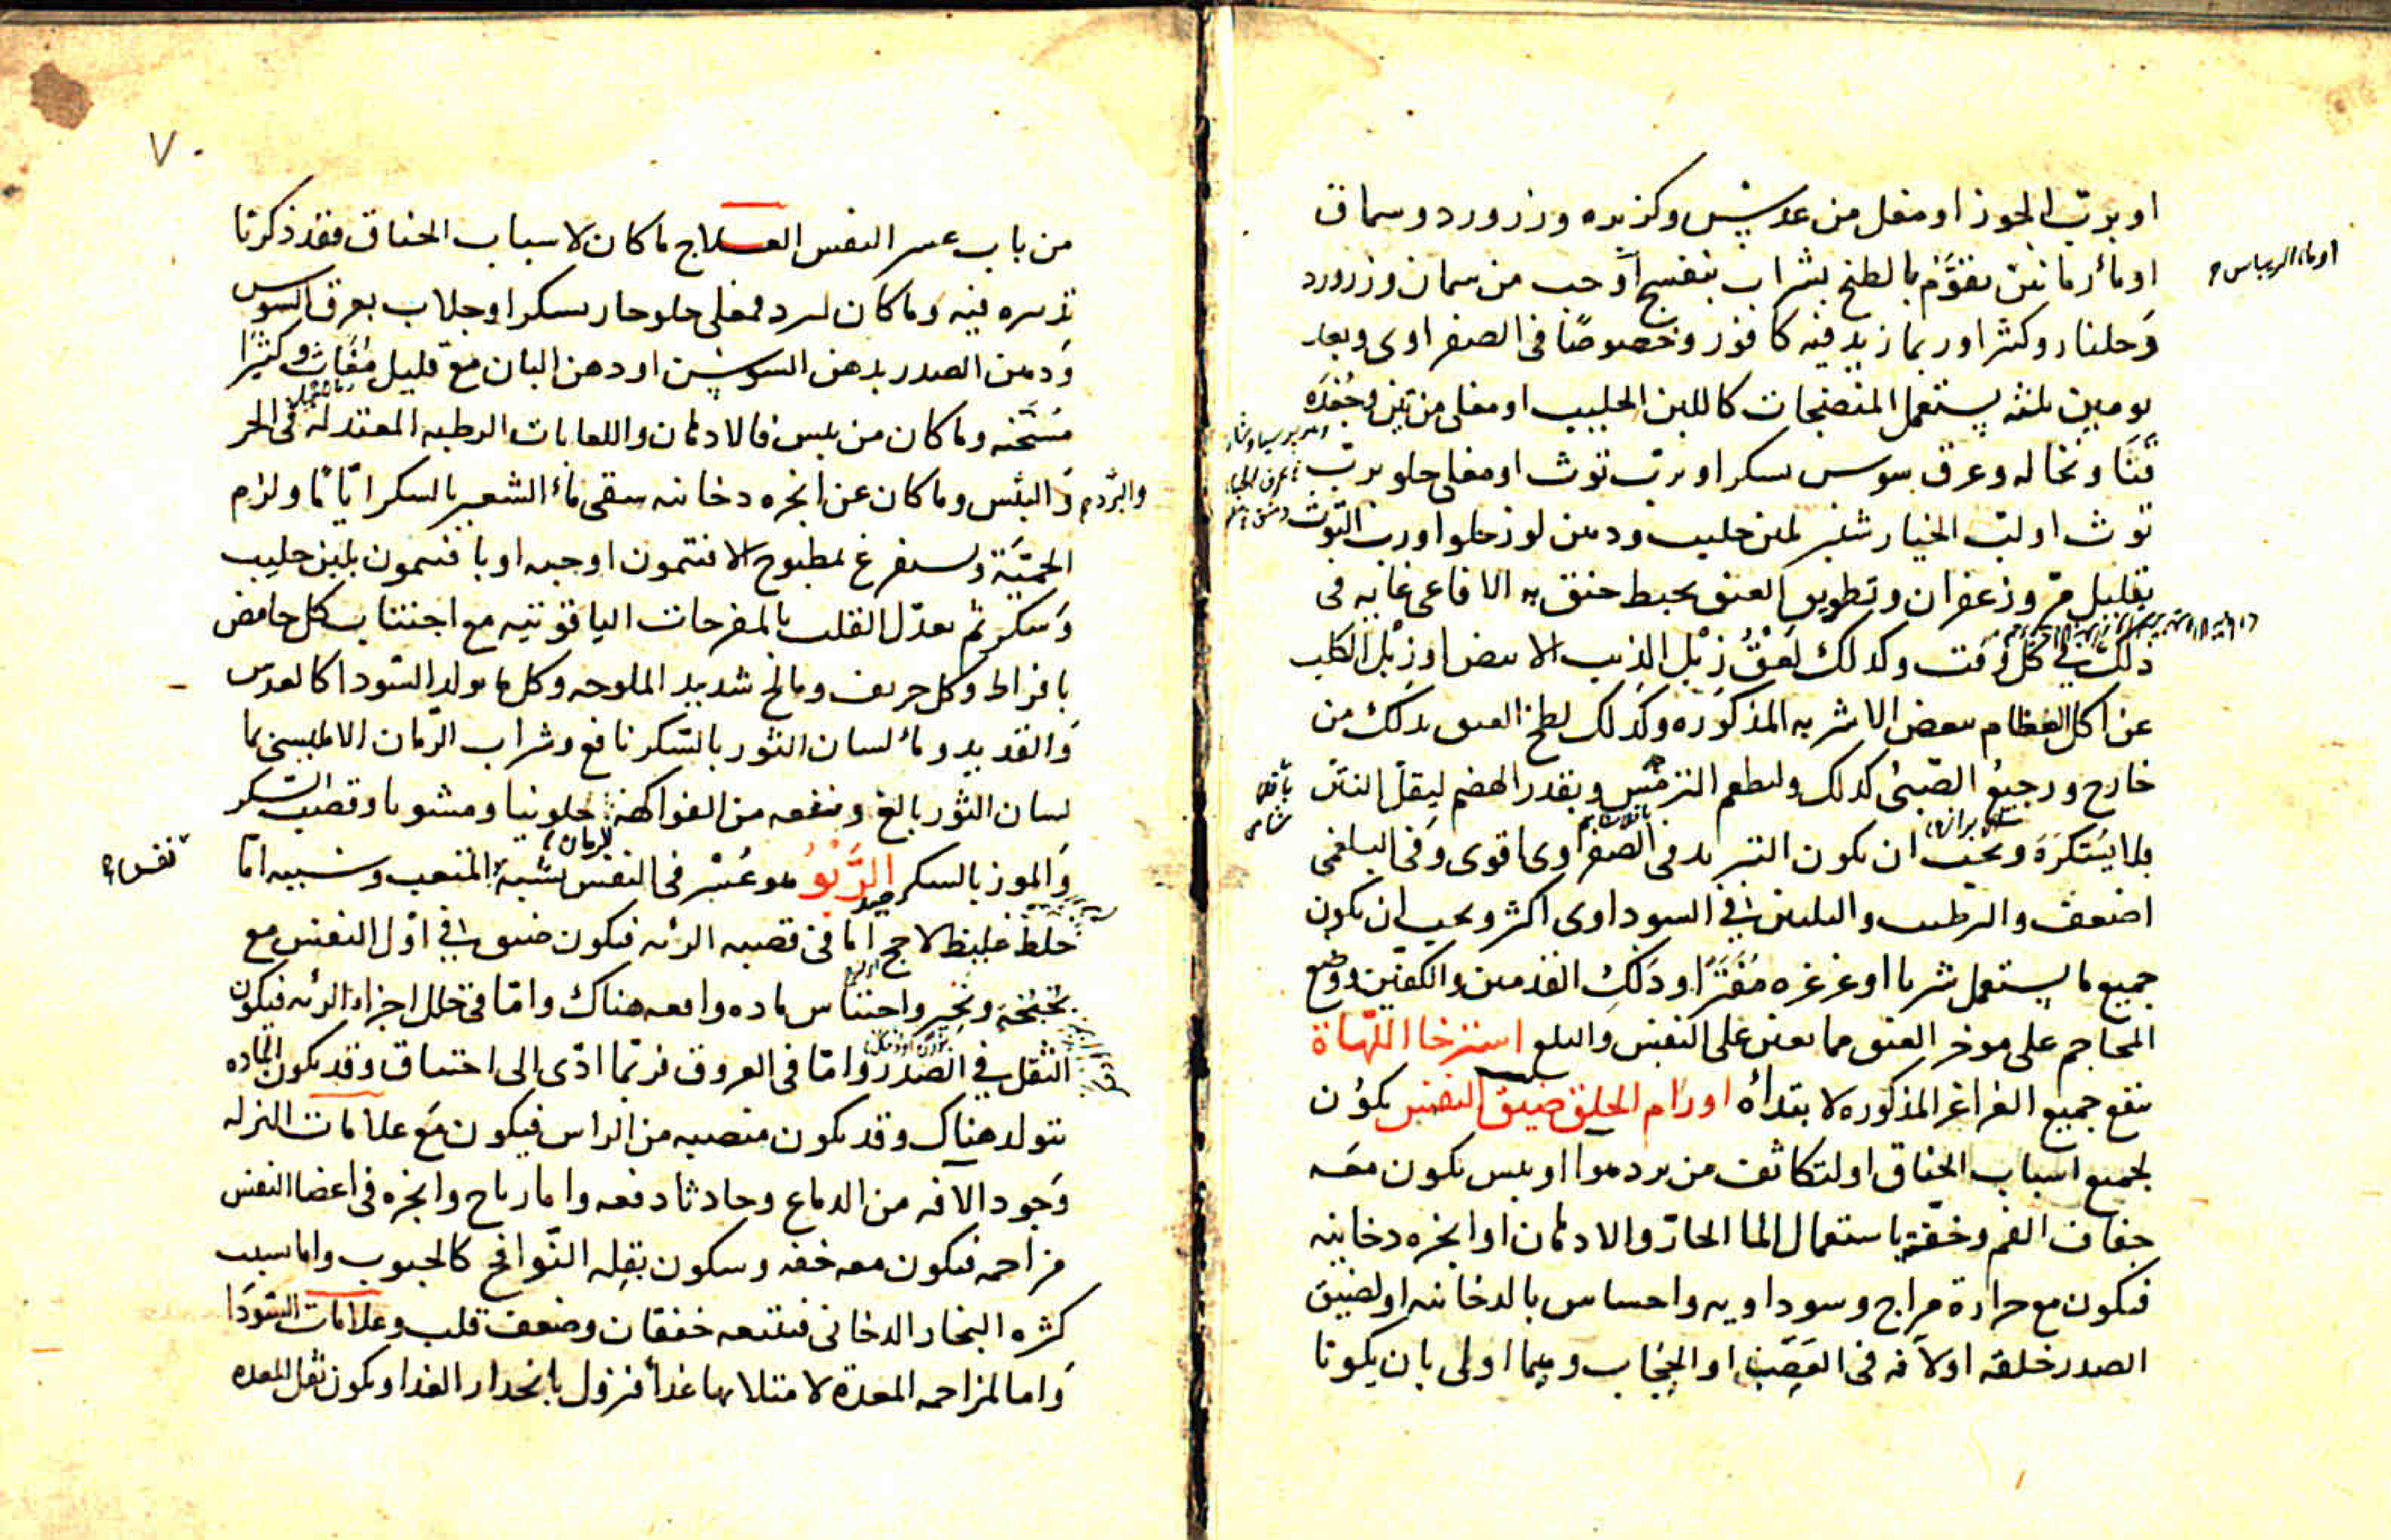 او برب الجوز او مغلى من عدس وكزبره وزرورد وسماق
او ماء الريباس
او ماء رمانين يقوّم بالطبخ بشراب بنفسج او حب من سماق وزرورد
وجلنار وكثيرا وربما زيد فيه كافور وخصوصًا فى الصفراوى وبعد
يومين ثلثه يستعمل المنضجات كاللبن الحليب او مغلى من تين وجُعْدَه
ونخاله وعرق سوس بسكر او برب توث او مغلى حلو برب
توث او لب الخيار شنبر بلبن حليب ودهن لوز حلو او رب التوث
بقليل مرّ وزعفران وتطويق العنق بخيط خنق به الافاعى غايه فى
ذلك فى كل وقت وكذلك لَعْقُ زِبْل الذيب الابيض او زِبْل الكلب
عن اكل العظام ببعض الاشربه المذكوره وكذلك لطخ العنق بذلك من
خارج ورجيع الصّبىّ كذلك وليطعم الترمس وبقدر الهضم ليقل النتن
باقلا
شامى
فلا يستكره ويجب ان يكون التبريد فى الصفراوى اقوى وفى البلغمى
اضعف والترطيب والتليين فى السوداوى اكثر ويجب ان يكون
جميع ما يستعمل شربا او غرغره مُفَتَّرًا ودَلك القدمين والكفين ووضع
المحاجم على موخر العنق مما يعين على النفس والبلع استرخا اللّهاة
ينفع جميع الغراغر المذكوره لابتدائه اورام الحلق ضيق النفس يكون
لجميع اسباب الخناق او لتكاثف من برد هوا او يبس يكون معه
جفاف الفم وخفّته باستعمال الما الحارّ والادهان او ابخره دخانيه
فيكون مع حرارة مزاج وسوداويه واحساس بالدخانيه او لضيق
الصدر خلقه او لآفه فى العَصَب او الحِجَاب وهما اولى بان يكونا
٧٠
من باب عسر النفس العلاج ما كان لاسباب الخناق فقد ذكرنا
تدبيره فيه وما كان لبرد فمغلى حلو حار بسكر او جلاب بعرق السوس
ودهن الصدر بدهن السوسن او دهن البان مع قليل مُغَاث وكثيرا
مسَخنه وما كان من يبس فالادهان واللعابات الرطبه المعتدله فى الحر
والبرد
واليبس وما كان عن ابخره دخانيه سقى ماء الشعير بالسكر ايّامًا ولزم
الحِمْيَة ويستفرغ بمطبوخ الافتيمون او حبه او بافتيمون بلبن حليب
وسكر ثم يعدّل القلب بالمفرحات الياقوتيه مع اجتناب كل حامض
بافراط وكل حريف ومالح شديد الملوحه وكل ما يولد السّودا كالعدس
والقديد وماء لسان الثور بالسّكر نافع وشراب الرّمان الامليسى بما
لسان الثور بالغ وينفعه من الفواكهة حلوىيا ومشويا وقصب السكر
للرمان
والموز بالسكر الرَّبْوُ هو عُسْر فى النفس يشبه المتعب وسببه امّا
نفس
خلط غليظ لاحج امّا فى قصبه الرئه فيكون ضيق فى اوّل النفس مع
بحبحة ونخر واحتباس ماده واقعه هناك وامّا فى خلل اجزاء الرئه فيكون
الثقل فى الصدر وامّا فى العروق فربما ادّى الى اختناق وقد يكون الماده
تتولد هناك وقد يكون منصبه من الراس فيكون مع علامات النزله
وجود الافه من الدماغ وحادثا دفعه واما رياح وابخره فى اعضا النفس
مزاحمه فيكون معه خفه وسكون بقله النّوافخ كالحبوب واما بسبب
كثره البخار الدخانى فيتبعه خفقان وضعف قلب وعلامات السّودا
واما لمزاحمه المعدة لامتلائها غذاء فيزول بانحدار الغذا ويكون ثقل المعده